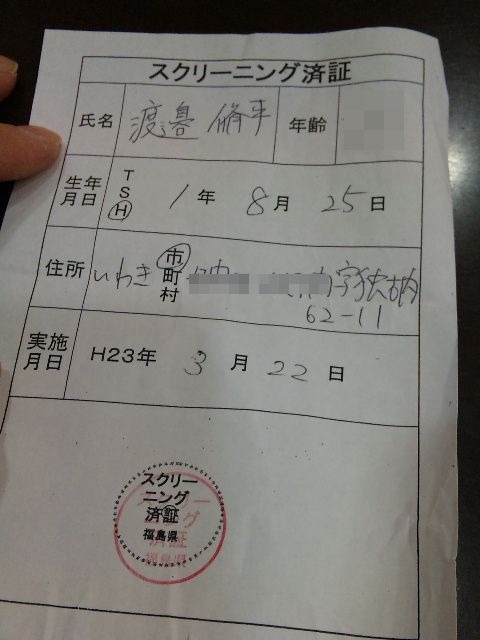 スクリーニング済証
氏名 渡邉 脩平 年齢
生年月日 T S H 1年 8月 25日
住所 いわき 市町村 字狭古内
62-11
実施月日 H23年 3月 22日
スクリー
ニング
済証
福島県